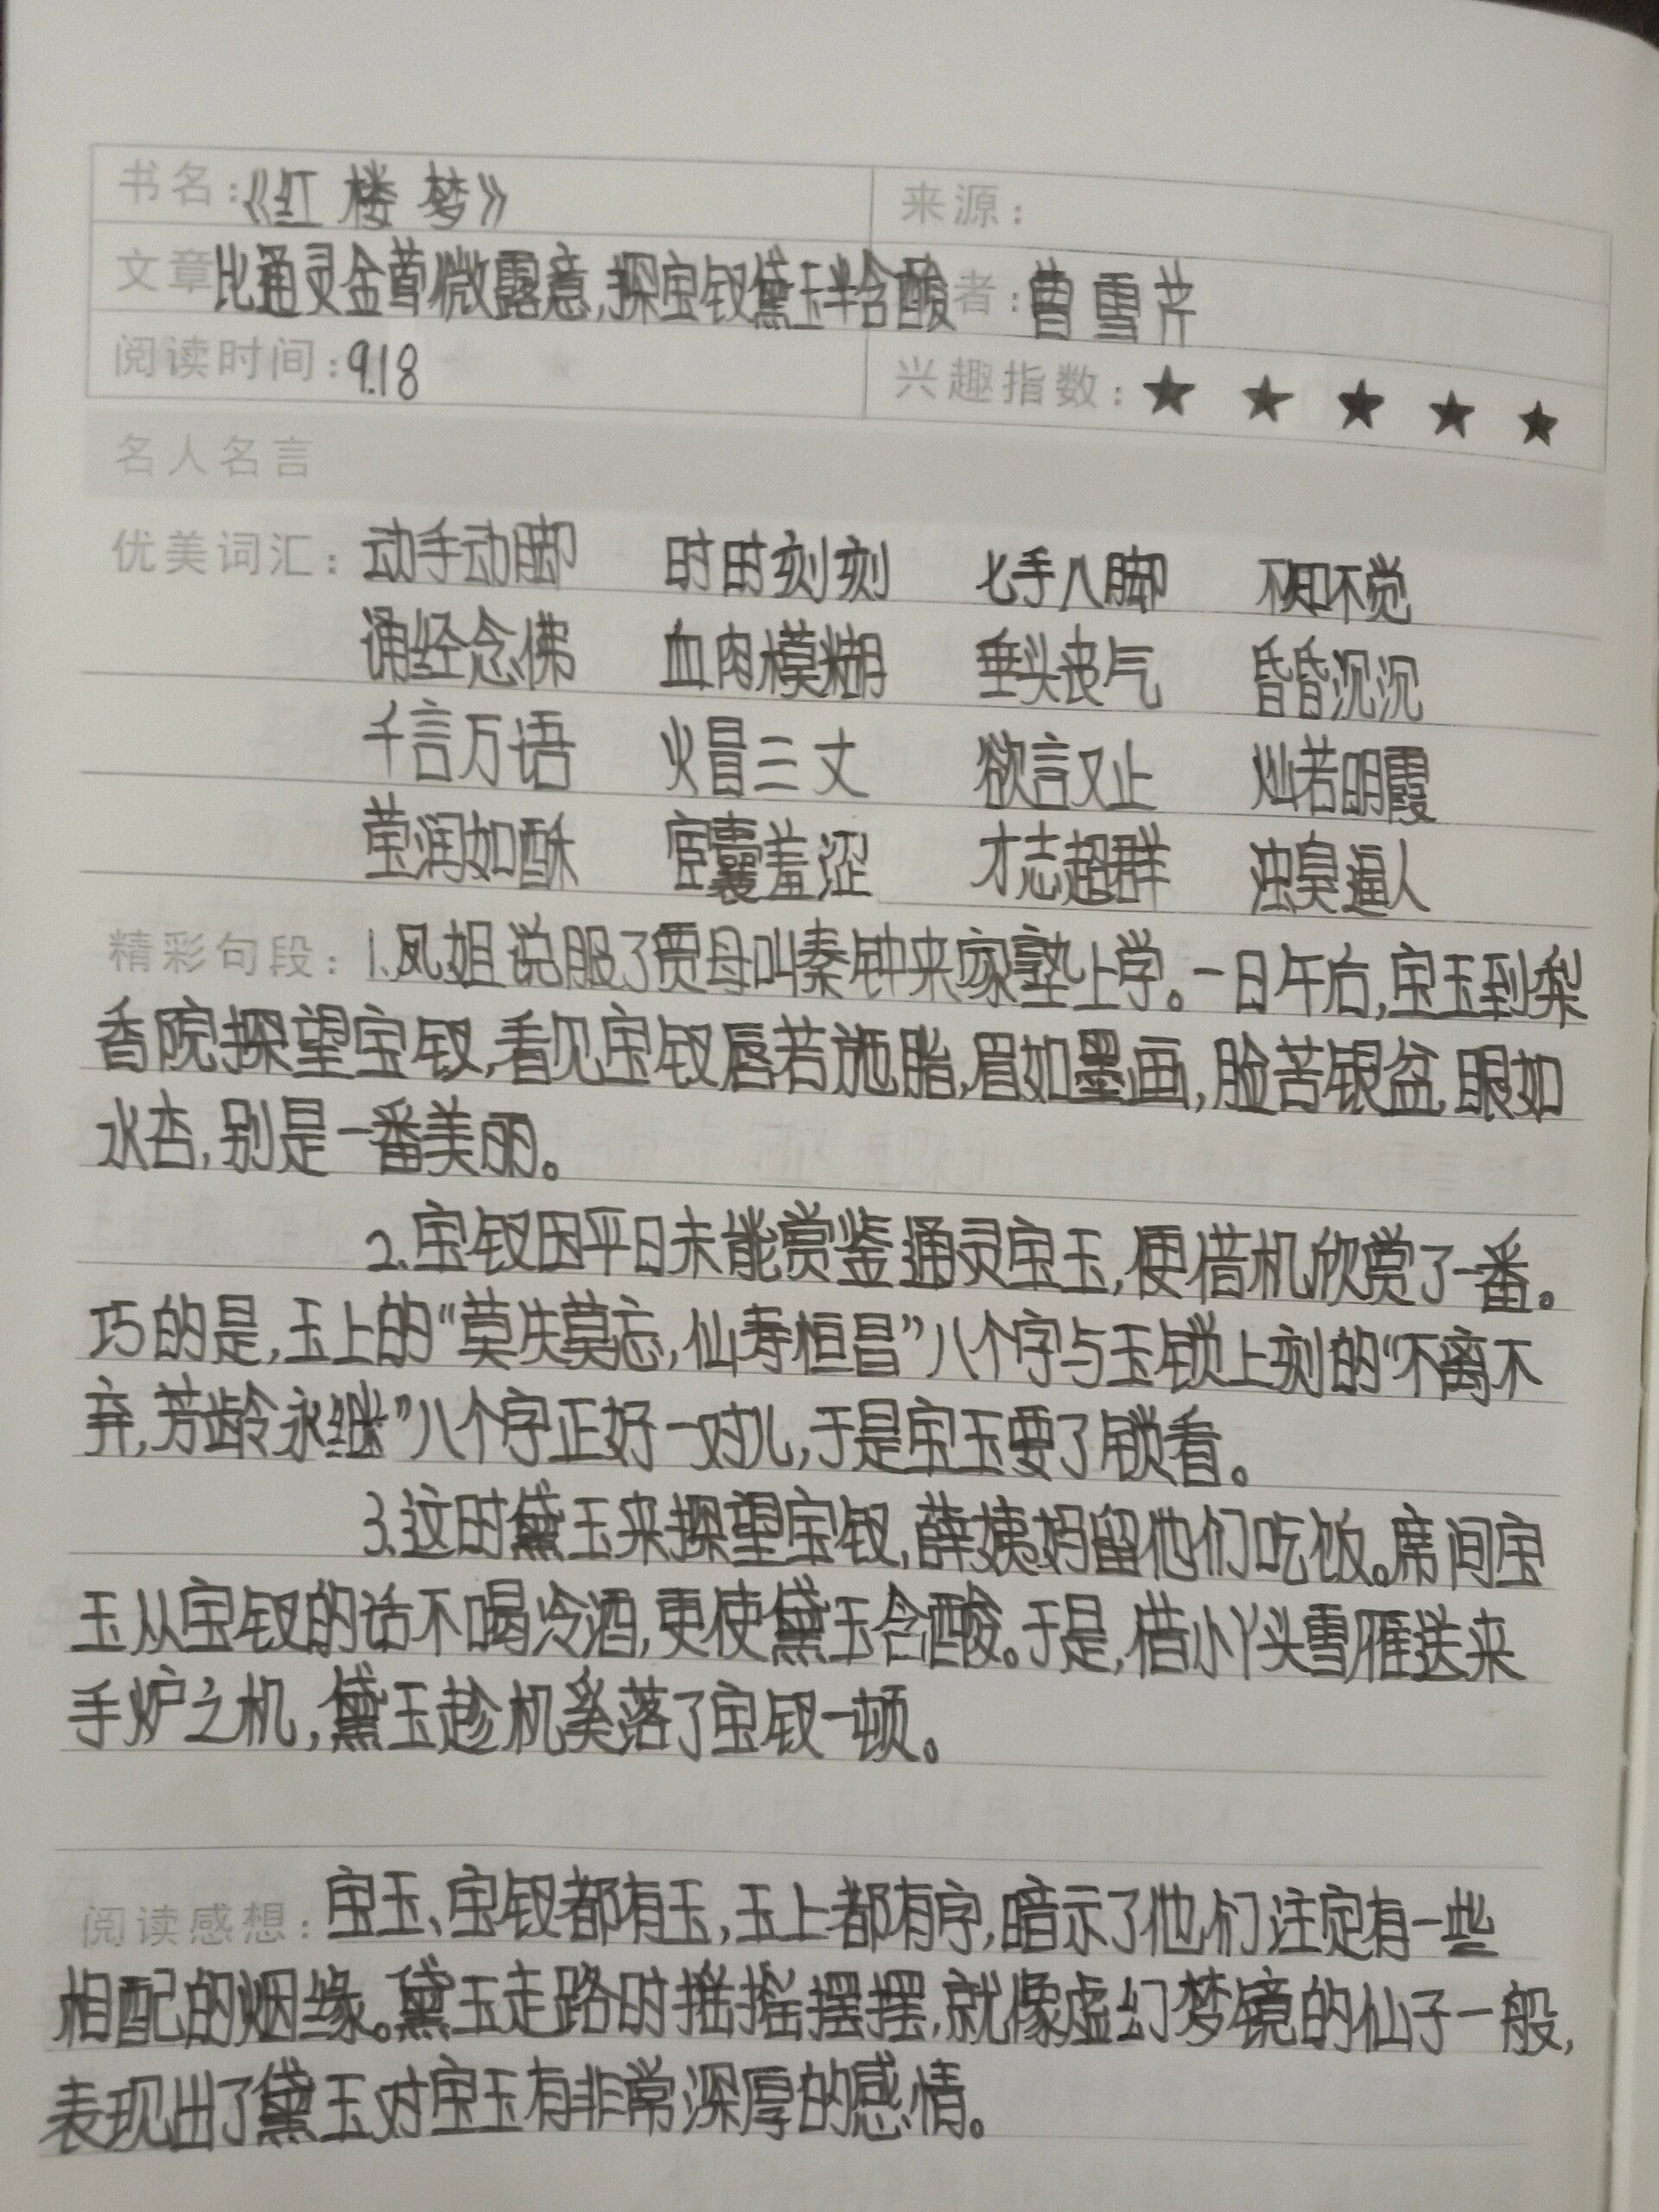 书名:《红楼梦》 来源:
文章比通灵金莺微露意,探宝钗黛玉半含酸者:曹雪芹
阅读时间:9.18 兴趣指数:★ ★ ★ ★ ★
名人名言
优美词汇: 动手动脚 时时刻刻 七手八脚 不知不觉
诵经念佛 血肉模糊 垂头丧气 昏昏沉沉
千言万语 火冒三丈 欲言又止 灿若明霞
莹润如酥 宦囊羞涩 才志超群 浊臭逼人
精彩句段: 1.凤姐说服了贾母叫秦钟来家塾上学。一日午后,宝玉到梨
香院探望宝钗,看见宝钗唇若施脂,眉如墨画,脸苦银盆,眼如
水杏,别是一番美丽。
2.宝钗因平日未能赏鉴通灵宝玉,便借机欣赏了一番。
巧的是,玉上的“莫失莫忘,仙寿恒昌”八个字与玉锁上刻的“不离不
弃,芳龄永继”八个字正好一对儿,于是宝玉要了锁看。
3.这时黛玉来探望宝钗,薛姨妈留他们吃饭。席间宝
玉从宝钗的话不喝冷酒,更使黛玉含酸。于是,借小丫头雪雁送来
手炉之机,黛玉趁机奚落了宝钗一顿。
阅读感想: 宝玉、宝钗都有玉,玉上都有字,暗示了他们注定有一些
相配的烟缘。黛玉走路时摇摇摆摆,就像虚幻梦镜的仙子一般,
表现出了黛玉对宝玉有非常深厚的感情。